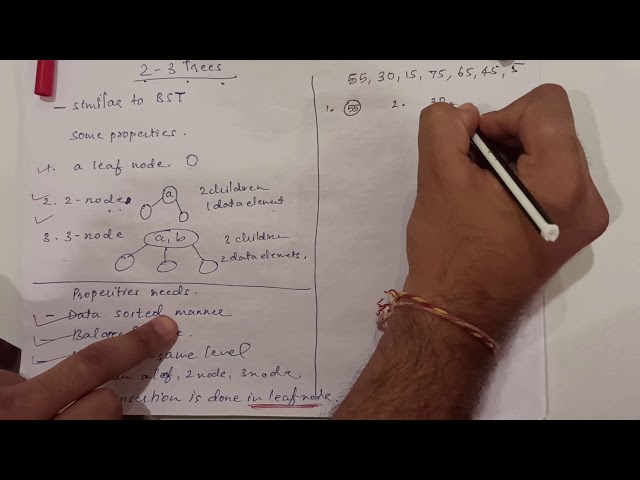 2-3 Trees
- similar to BST
some properties.
1. a leaf node.
2. 2-node
a
2 children
1 data element
3. 3-node
a, b
3 children
2 data elemets.
Properities needs.
- Data sorted mannee
same level
2 node, 3 node
insertion is done in leaf node.
55, 30, 15, 75, 65, 45, 5
1. 55
2. 30